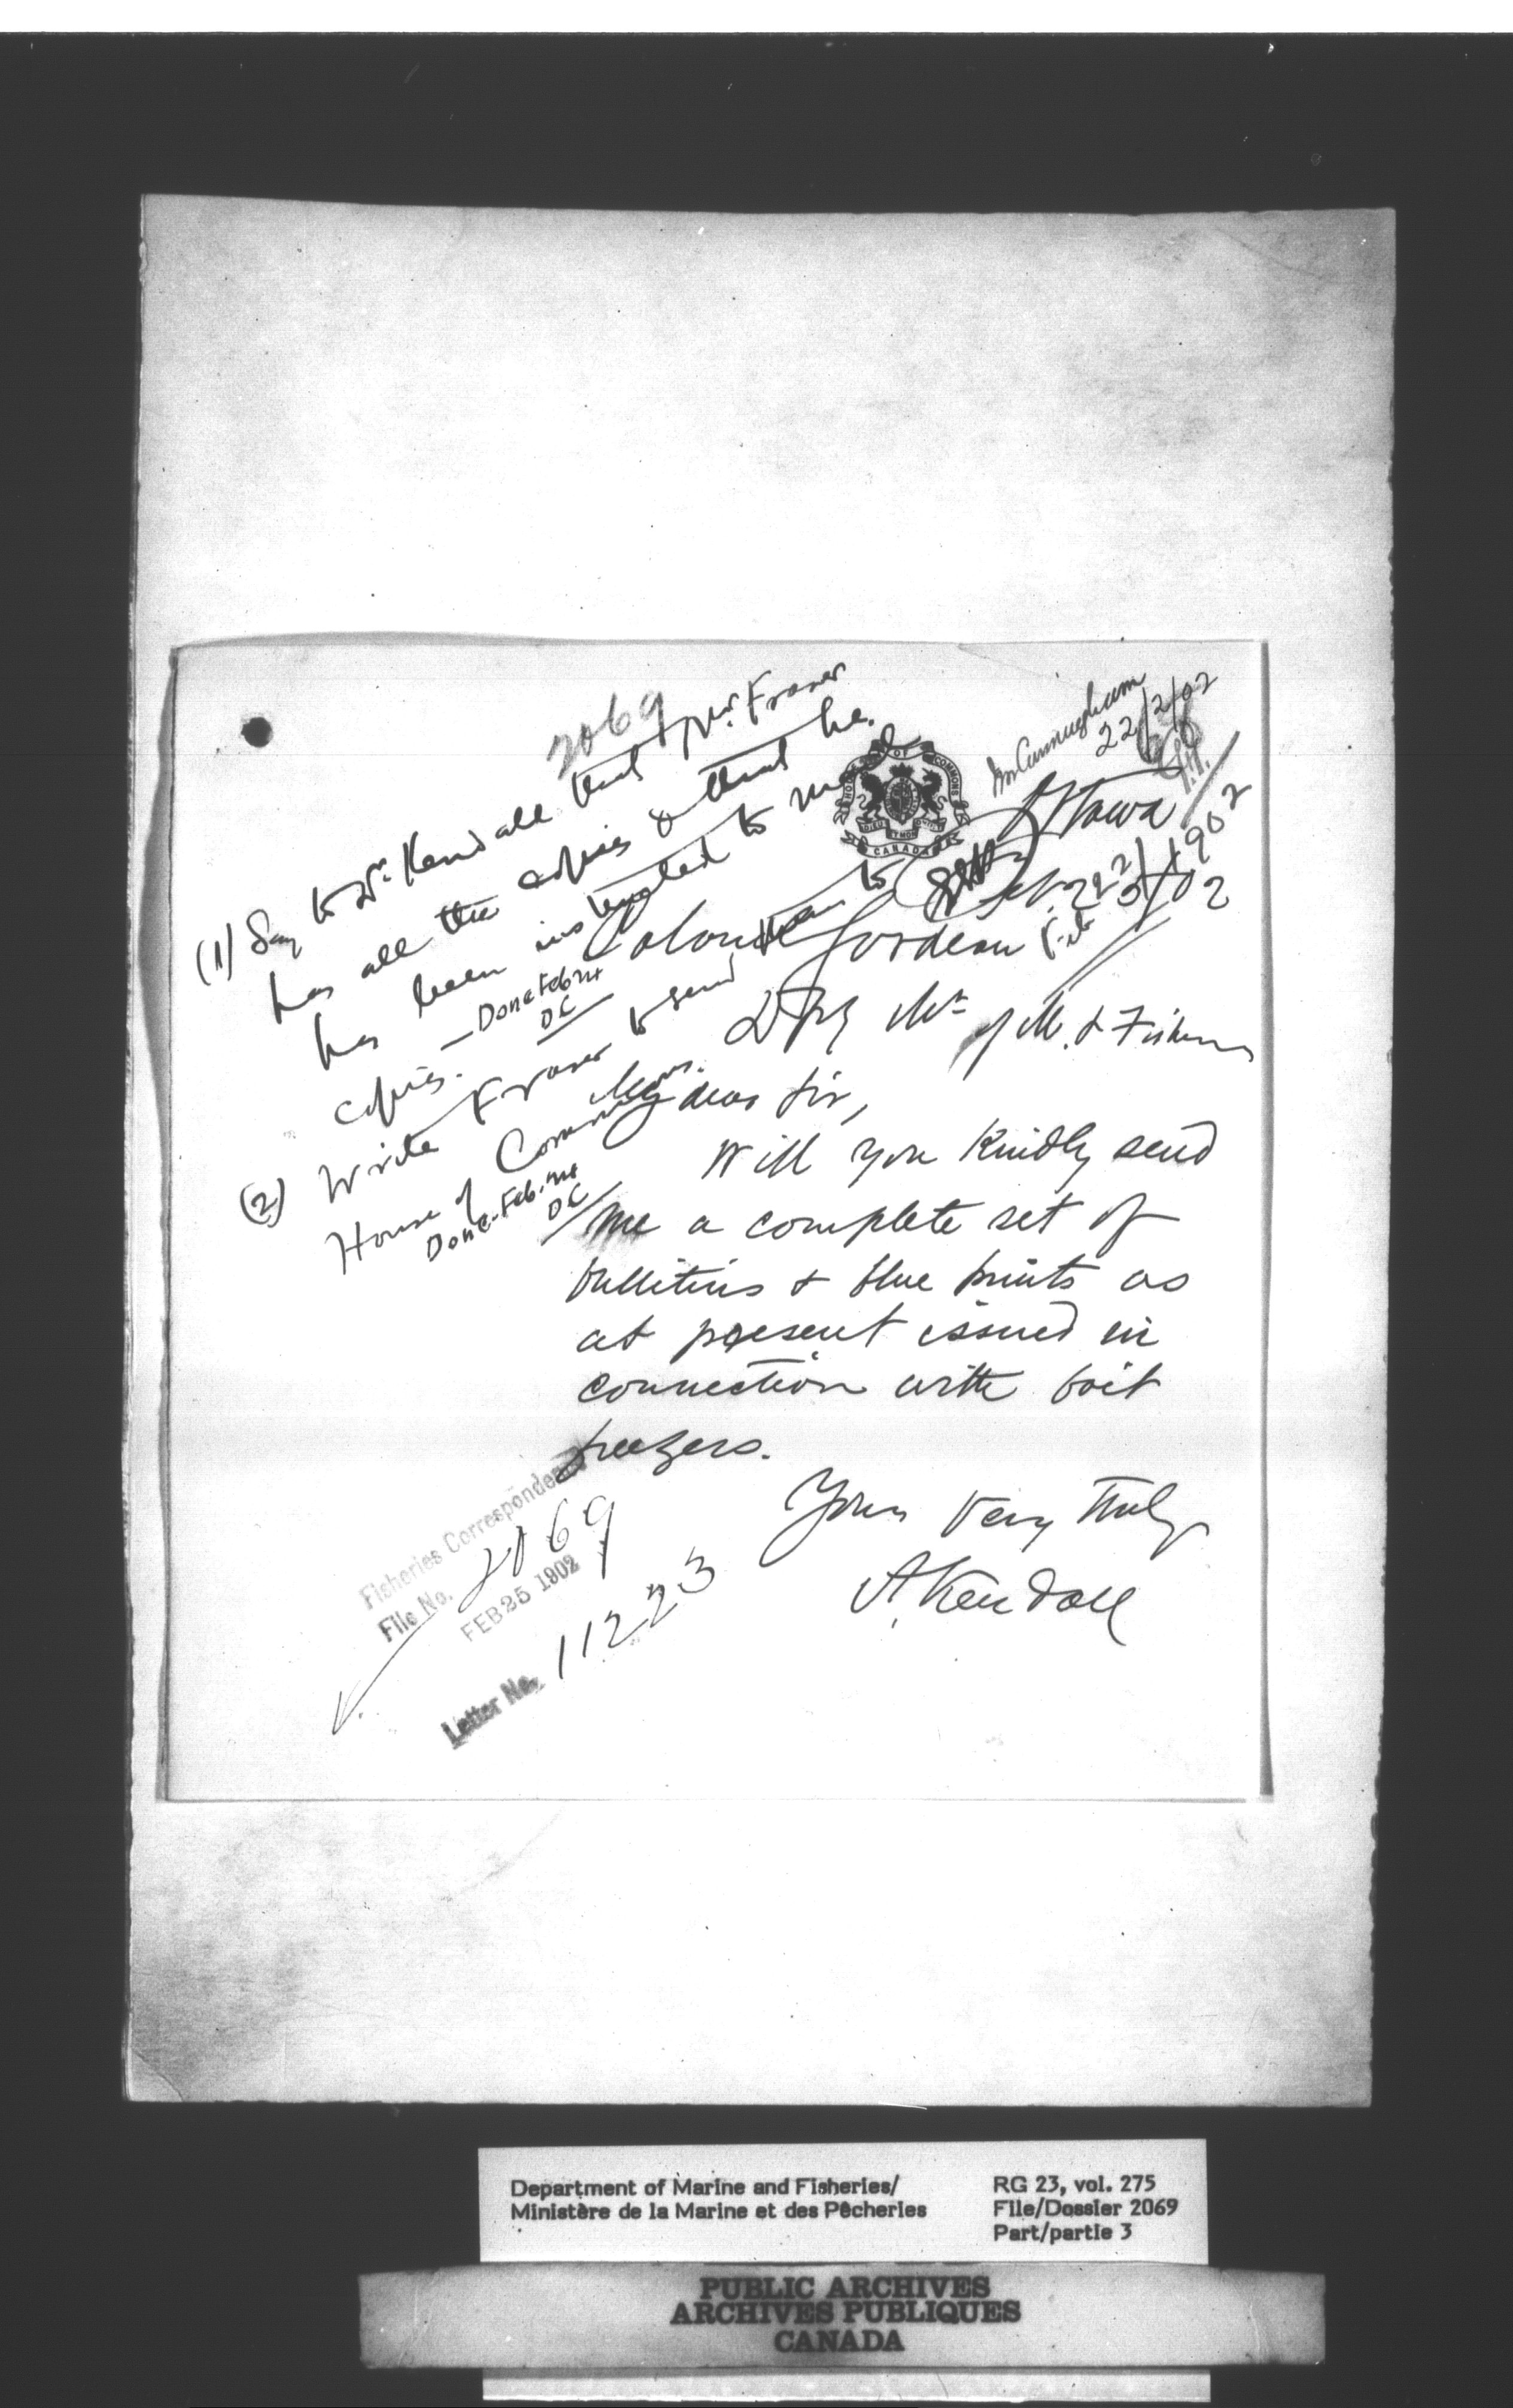 2069
(1) Say to Dr. Kendall that Mr. Fraser
has all the copies & that he
has been instructed to
copies. — Done Feb 24
DC
(2) Write Fraser to send them to
House of Commons.
Done Feb. 24
DC
HOUSE OF COMMONS
DIEU ET MON DROIT
CANADA
Mr Cunningham
22/2/02
Ottawa
Feb. 22 1902
File
Colonel Gordeau
Dpy Mr of M. & Fisheries
My dear Sir,
Will you Kindly send
me a complete set of
bullitins & blue prints as
at present issued in
connection with bait
freezers.
Yours Very Truly
A. Kendall
Fisheries Correspondence
File No. 2069
FEB 25 1902
Letter No. 11223
Department of Marine and Fisheries/
Ministère de la Marine et des Pêcheries
RG 23, vol. 275
File/Dossier 2069
Part/partie 3
PUBLIC ARCHIVES
ARCHIVES PUBLIQUES
CANADA